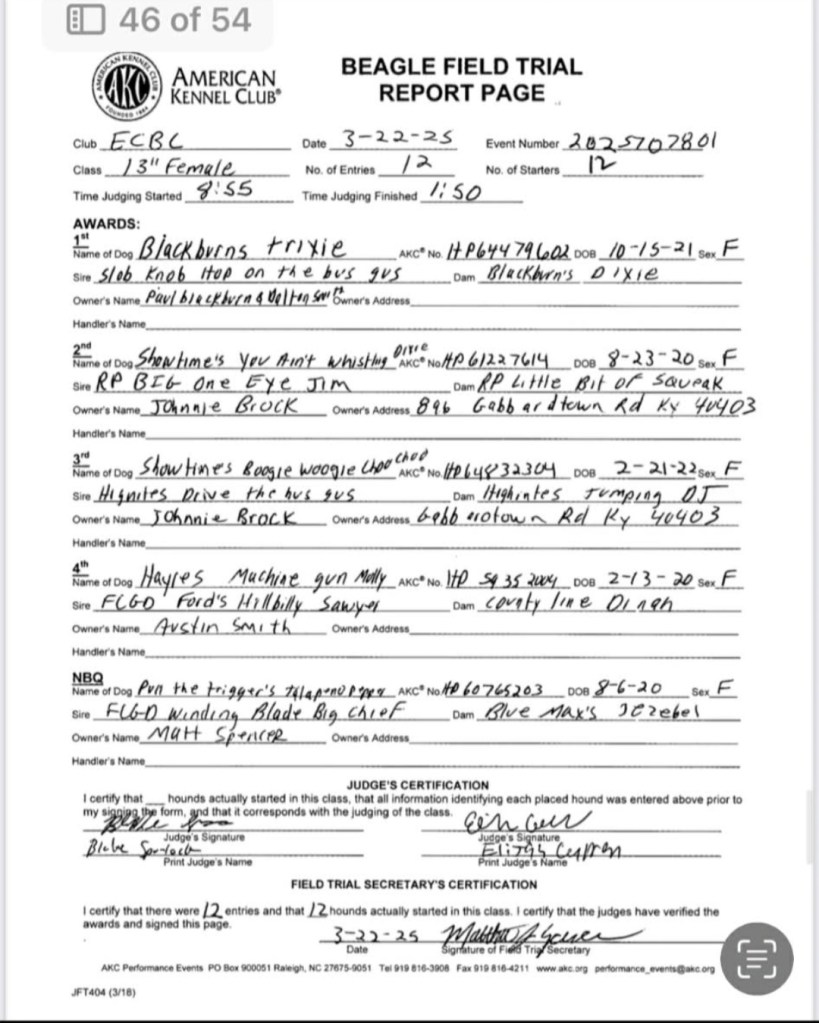 46 of 54
AMERICAN KENNEL CLUB
AKC
FOUNDED 1884
AMERICAN
KENNEL CLUB®
BEAGLE FIELD TRIAL
REPORT PAGE
Club ECBC Date 3-22-25 Event Number 2025707801
Class 13" Female No. of Entries 12 No. of Starters 12
Time Judging Started 8:55 Time Judging Finished 1:50
AWARDS:
1st
Name of Dog Blackburns trixie AKC® No. HP64479602 DOB 10-15-21 Sex F
Sire Slob Knob Hop on the bus gus Dam Blackburn's Dixie
Owner's Name Paul blackburn & Owner's Address
Handler's Name
2nd
Name of Dog Showtime's You Ain't whistling Dixie AKC® No. HP61227614 DOB 8-23-20 Sex F
Sire RP BIG One Eye Jim Dam RP Little Bit of Squeak
Owner's Name Johnnie Brock Owner's Address 896 Gabbardtown Rd Ky 40403
Handler's Name
3rd
Name of Dog Showtimes Boogie woogie Choo Choo AKC® No. HP64832304 DOB 2-21-22 Sex F
Sire Hignites Drive the bus gus Dam Highintes Jumping OJ
Owner's Name Johnnie Brock Owner's Address Rd Ky 40403
Handler's Name
4th
Name of Dog Hayres Machine gun Molly AKC® No. HP 59352004 DOB 2-13-20 Sex F
Sire FCGD Ford's Hillbilly Sawyer Dam county line Dinah
Owner's Name Austin Smith Owner's Address
Handler's Name
NBQ
Name of Dog Pull the trigger's AKC® No. HP60765203 DOB 8-6-20 Sex F
Sire FCGD Winding Blade Big Chief Dam Blue Max's Jezebel
Owner's Name Matt Spencer Owner's Address
Handler's Name
JUDGE'S CERTIFICATION
I certify that ___ hounds actually started in this class, that all information identifying each placed hound was entered above prior to
my signing the form, and that it corresponds with the judging of the class.
Judge's Signature Judge's Signature
Blake Elijah
Print Judge's Name Print Judge's Name
FIELD TRIAL SECRETARY'S CERTIFICATION
I certify that there were 12 entries and that 12 hounds actually started in this class. I certify the judges have verified the
awards and signed this page.
3-22-25
Date Signature of Field Trial Secretary
AKC Performance Events PO Box 900051 Raleigh, NC 27675-9051 Tel 919 816-3908 Fax 919 816-4211 www.akc.org performance_events@akc.org
JFT404 (3/16)